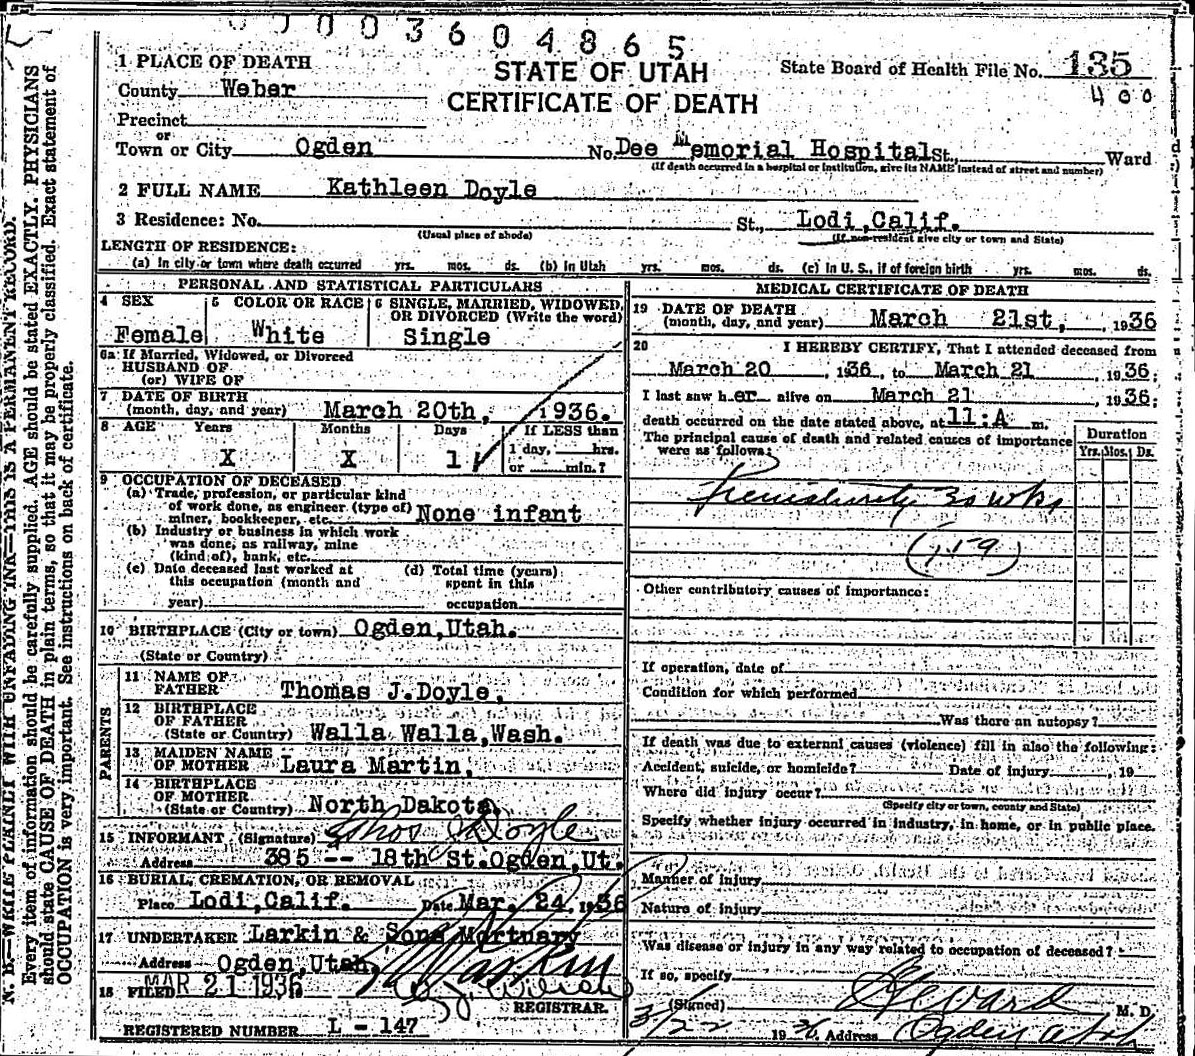 0003604865
1 PLACE OF DEATH
STATE OF UTAH
State Board of Health File No. 135
County Weber
CERTIFICATE OF DEATH
400
Precinct
or
Town or City Ogden No. Dee Memorial Hospital St., Ward
(If death occurred in a hospital or institution, give its NAME instead of street and number)
2 FULL NAME Kathleen Doyle
3 Residence: No. St., Lodi, Calif.
(Usual place of abode) (If non-resident give city or town and State)
LENGTH OF RESIDENCE:
(a) In city or town where death occurred yrs. mos. ds. (b) In Utah yrs. mos. ds. (c) In U. S., if of foreign birth yrs. mos. ds.
PERSONAL AND STATISTICAL PARTICULARS
4 SEX 5 COLOR OR RACE 6 SINGLE, MARRIED, WIDOWED, OR DIVORCED (Write the word)
Female White Single
6a If Married, Widowed, or Divorced
HUSBAND OF
(or) WIFE OF
7 DATE OF BIRTH
(month, day, and year) March 20th, 1936.
8 AGE Years Months Days If LESS than
X X 1 1 day, hrs.
or min.?
9 OCCUPATION OF DECEASED
(a) Trade, profession, or particular kind
of work done, as engineer (type of)
miner, bookkeeper, etc. None infant
(b) Industry or business in which work
was done, as railway, mine
(kind of), bank, etc.
(c) Date deceased last worked at (d) Total time (years)
this occupation (month and spent in this
year) occupation
10 BIRTHPLACE (City or town) Ogden, Utah.
(State or Country)
PARENTS
11 NAME OF
FATHER Thomas J. Doyle,
12 BIRTHPLACE
OF FATHER
(State or Country) Walla Walla, Wash.
13 MAIDEN NAME
OF MOTHER Laura Martin,
14 BIRTHPLACE
OF MOTHER
(State or Country) North Dakota
15 INFORMANT (Signature) Thos J Doyle
Address 385 -- 18th St. Ogden, Ut.
16 BURIAL, CREMATION, OR REMOVAL
Place Lodi, Calif. Date Mar. 24, 1936
17 UNDERTAKER Larkin & Sons Mortuary
Address Ogden, Utah.
18 FILED MAR 21 1936
REGISTRAR.
REGISTERED NUMBER L - 147
MEDICAL CERTIFICATE OF DEATH
19 DATE OF DEATH
(month, day, and year) March 21st, 1936
20 I HEREBY CERTIFY, That I attended deceased from
March 20, 1936, to March 21, 1936;
I last saw her alive on March 21, 1936;
death occurred on the date stated above, at 11:A m.
The principal cause of death and related causes of importance
were as follows:
Duration
Yrs. Mos. Ds.
Prematurity 30 wks
(159)
Other contributory causes of importance:
If operation, date of
Condition for which performed
Was there an autopsy?
If death was due to external causes (violence) fill in also the following:
Accident, suicide, or homicide? Date of injury , 19
Where did injury occur?
(Specify city or town, county and State)
Specify whether injury occurred in industry, in home, or in public place.
Manner of Injury
Nature of injury
Was disease or injury in any way related to occupation of deceased? -
If so, specify
(Signed) M. D.
3/22 1936 Address Ogden Utah
N. B.—WRITE PLAINLY WITH UNFADING INK—THIS IS A PERMANENT RECORD.
Every item of information should be carefully supplied. AGE should be stated EXACTLY. PHYSICIANS
should state CAUSE OF DEATH in plain terms, so that it may be properly classified. Exact statement of
OCCUPATION is very important. See instructions on back of certificate.